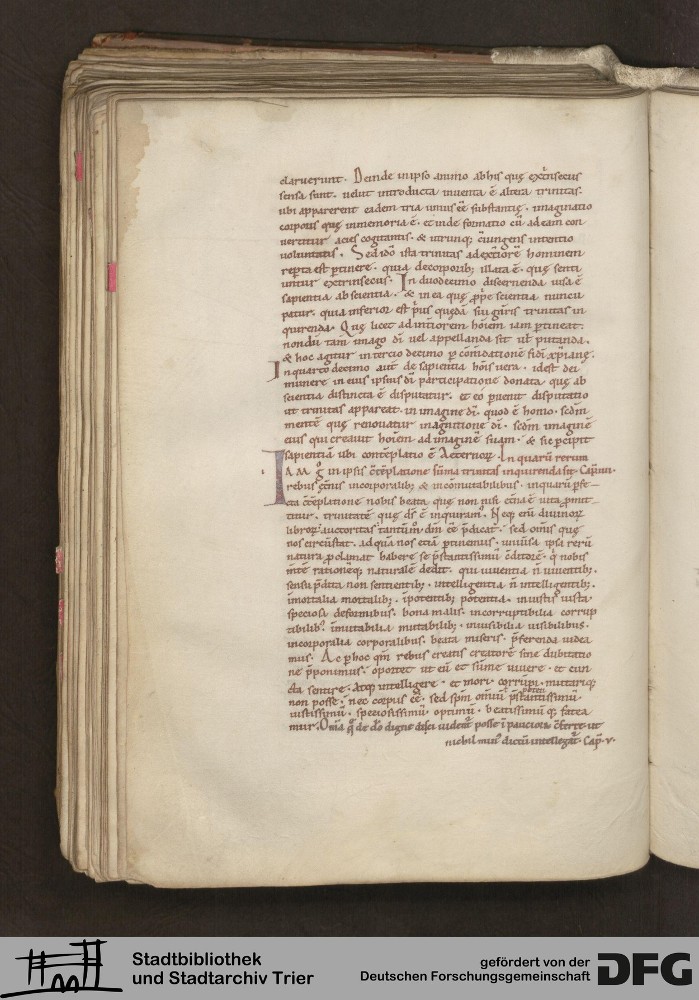 claruerunt. Deinde in ipso animo ab his quę extrinsecus
sensa sunt. uelut introducta inuenta ē altera trinitas.
ubi apparerent eadem tria unius eē substantię. imaginatio
corporis quę in memoria ē. et inde formatio cū ad eam con
uertitur acies cogitantis. & utrunq; ciungens intentio
uoluntatis. Sed idō ista trinitas ad exteriorē hominem
reperta est ptinere. quia de corporib; illata ē. quę senti
untur extrinsecus. In duodecimo discernenda uisa ē
sapientia ab scientia. & in ea quę ppe scientia nuncu
patur. quia inferior est prius quędā sui gnris trinitas in
quirenda. Quę licet ad intiorem hoiem iam ptineat.
nondū tam imago dī uel appellanda sit ut putanda.
& hoc agitur in tercio decimo p cōmdationē fidi xpianę.
In quarto decimo autē de sapientia hōis uera. idest dei
munere in eius ipsius dī participatione donata quę ab
scientia distincta ē disputatur. et eo puenit disputatio
ut trinitas appareat. in imagine dī. quod ē homo. scdm
mentē quę renouatur in agnitione dī. scdm imaginē
eius qui creauit hoiem ad imaginē suam. & sic pcipit
sapientiā ubi contēplatio ē Aeternor. In quarū rerum
IAM g in ipsis ctēplatione sūma trinitas inquirenda sit. Capm iiii.
rebus ęternis incorporalib; & incōmutabilibus. in quarū pfe
cta ctēplatione nobis beata quę non nisi ęterna ē uita pmit
titur. trinitatē quę ds ē inquiram. Neq; enī diuinor
libror auctoritas tantūm dm eē pdicat. sed omis quę
nos circūstat. ad quā nos etiā ptinemus. uniusa ipsa rerū
natura pclamat habere se pstantissimū cditorē. q nobis
mtē rationēq; naturalē dedit. qui uiuentia n uiuentib;.
sensu pdita non sentientib;. intelligentia n intelligentib;.
imortalia mortalib; ipotentib; potentia. iniustis iusta
speciosa deformibus. bona malis. incorruptibilia corrup
tibilib;. imutabilia mutabilib;. inuisibilia uisibilibus.
incorporalia corporalibus. beata miseris. pferenda uidea
mus. Ac p hoc qm rebus creatis creatorē sine dubitatio
ne pponimus. oportet ut eū et sūme uiuere. et cun
cta sentire. Atq; intelligere. et mori. corrūpi. mutariq;
non posse. nec corpus eē. sed spm omiū potentissimū
iustissimū. speciosissimū. optimū. beatissimū q; fatea
mur. Omia q de do digne dici uident posse i pauciora cferre. ut
nichil min dictū intellegat. Cap. v.
Stadtbibliothek
und Stadtarchiv Trier
gefördert von der
Deutschen Forschungsgemeinschaft
DFG